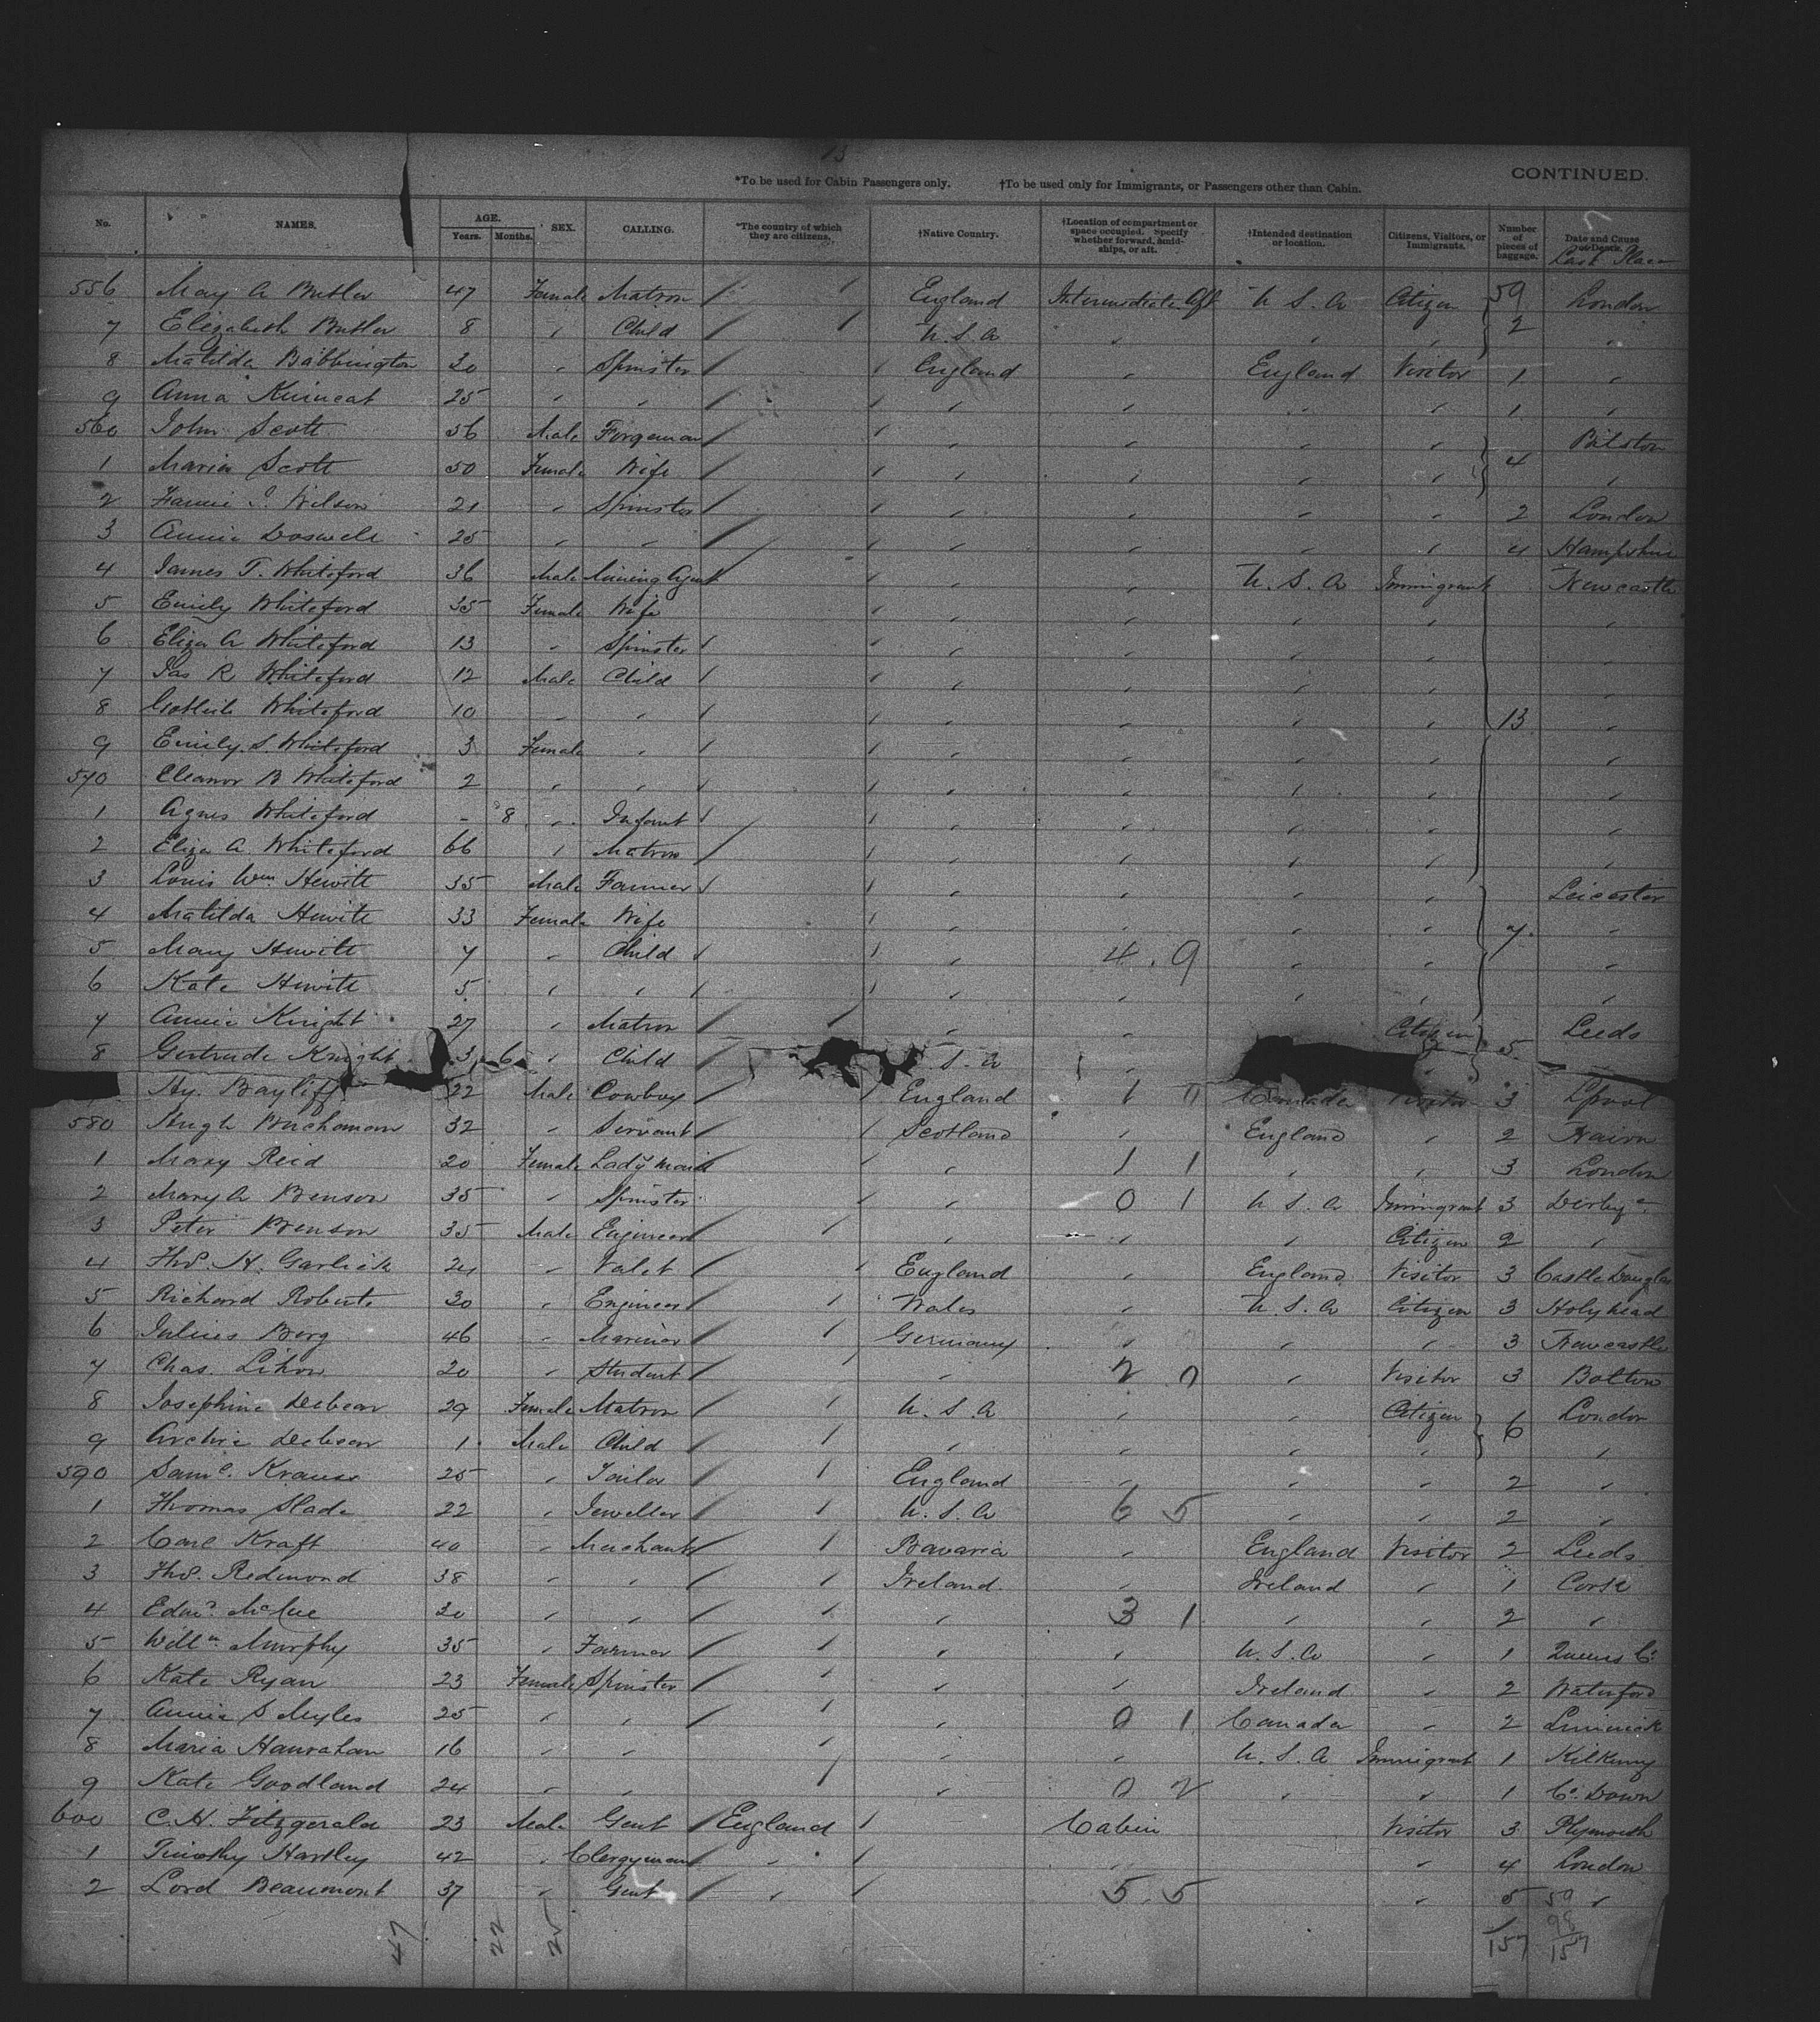 13
*To be used for Cabin Passengers only. †To be used only for Immigrants, or Passengers other than Cabin. CONTINUED.
No. NAMES. AGE. Years. Months. SEX. CALLING. *The country of which they are citizens. †Native Country. †Location of compartment or space occupied. Specify whether forward, amidships, or aft. †Intended destination or location. Citizens, Visitors, or Immigrants. Number of pieces of baggage. Date and Cause of Death. Last Place
556 Mary A Butler 47 Female Matron / / England Intermediate Aft U.S.A Citizen 59 London
7 Elizabeth Butler 8 " Child / / U.S.A " " " 2 "
8 Matilda Babbington 30 " Spinster / / England " England Visitor 1 "
9 Anna 25 " " / / " " " " 1 "
560 John Scott 56 Male Forgeman / / " " " " Bilston
1 Maria Scott 50 Female Wife / / " " " " 4 "
2 Fannie J. Wilson 21 " Spinster / / " " " " 2 London
3 Annie Boswell 25 " " / / " " " " 4 Hampshire
4 James T. Whiteford 36 Male Mining Agent / / " " U.S.A Immigrant Newcastle
5 Emily Whiteford 35 Female Wife / " " " " "
6 Eliza A Whiteford 13 " Spinster / / " " " " "
7 Jas R Whiteford 12 Male Child / / " " " " "
8 Whiteford 10 " " / / " " " " 13 "
9 Emily S. Whiteford 3 Female " / / " " " " "
570 Eleanor B Whiteford 2 " " / / " " " " "
1 Agnes Whiteford - 8 " Infant / / " " " " "
2 Eliza A Whiteford 66 " Matron / / " " " " "
3 Louis Wm Hewitt 35 Male Farmer / / " " " " Leicester
4 Matilda Hewitt 33 Female Wife / " " " " 7 "
5 Mary Hewitt 7 " Child / / " 4.9 " " "
6 Kate Hewitt 5 " " / / " " " " "
7 Annie Knight 27 " Matron / / " " Citizen Leeds
8 Gertrude Knight 3 6 " Child / S.A " " 5
Hy. Bayliff 22 Male Cowboy / / England 10 Canada Visitor 3 Lpool
580 Hugh Buchanan 32 " Servant / / Scotland " England " 2 Nairn
1 Mary Reid 20 Female Lady Maid / / " 1 1 " " 3 London
2 Mary A Benson 35 " Spinster / " 0 1 U.S.A Immigrant 3 Derby
3 Peter Benson 35 Male Engineer / / " " " Citizen 2 "
4 Thos. H. Garlick 24 " Valet / / England " England Visitor 3 Castle Douglas
5 Richard Roberts 30 " Engineer / / Wales " U.S.A Citizen 3 Holyhead
6 Julius Berg 46 " Mariner / / Germany " " " 3 Newcastle
7 Chas. 20 " Student / / " 2 0 " Visitor 3 Bolton
8 Josephine 29 Female Matron / / U.S.A " " Citizen 6 London
9 Archie 1 Male Child / / " " " " "
590 Saml. Krauss 25 " Tailor / / England " " " 2 "
1 Thomas Slade 22 " Jeweller / / U.S.A 6 5 " " 2 "
2 Carl Kraft 40 " Merchant / / Bavaria " England Visitor 2 Leeds
3 Thos. Redmond 38 " " / / Ireland " Ireland " 1 Cork
4 Edmd. McCue 30 " " / / " 3 1 " " 2 "
5 Willm Murphy 35 " Farmer / / " " U.S.A " 1 Queens Co.
6 Kate Ryan 23 Female Spinster / / " " Ireland " 2 Waterford
7 Annie S Myles 25 " " / / " 0 1 Canada " 2 Limerick
8 Maria Hanrahan 16 " " / " " U.S.A Immigrant 1 Kilkenny
9 Kate Goodland 24 " " / " 0 2 " " 1 Co. Down
600 C.H. Fitzgerald 23 Male Gent / England / Cabin Visitor 3 Plymouth
1 Timothy Hartley 42 " Clergyman / " / " " 4 London
2 Lord Beaumont 37 " Gent / " / 5.5 " 5 59 "
47 22 25 157 98 157